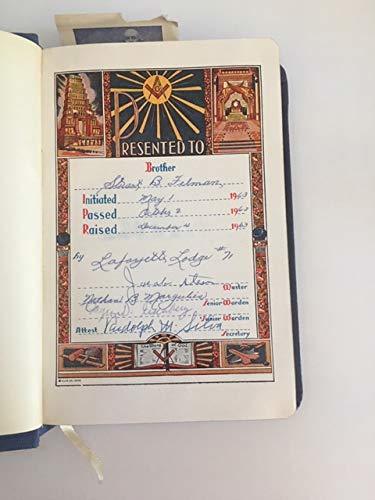 PRESENTED TO
Brother
B. Felman
Initiated May 1 1963
Passed October 2 1963
Raised December 4 1963
by Lafayette Lodge #71
Master
Nathaniel B. Margulies Senior Warden
Junior Warden
Attest Rudolph M. Silva
Secretary
The Word of God